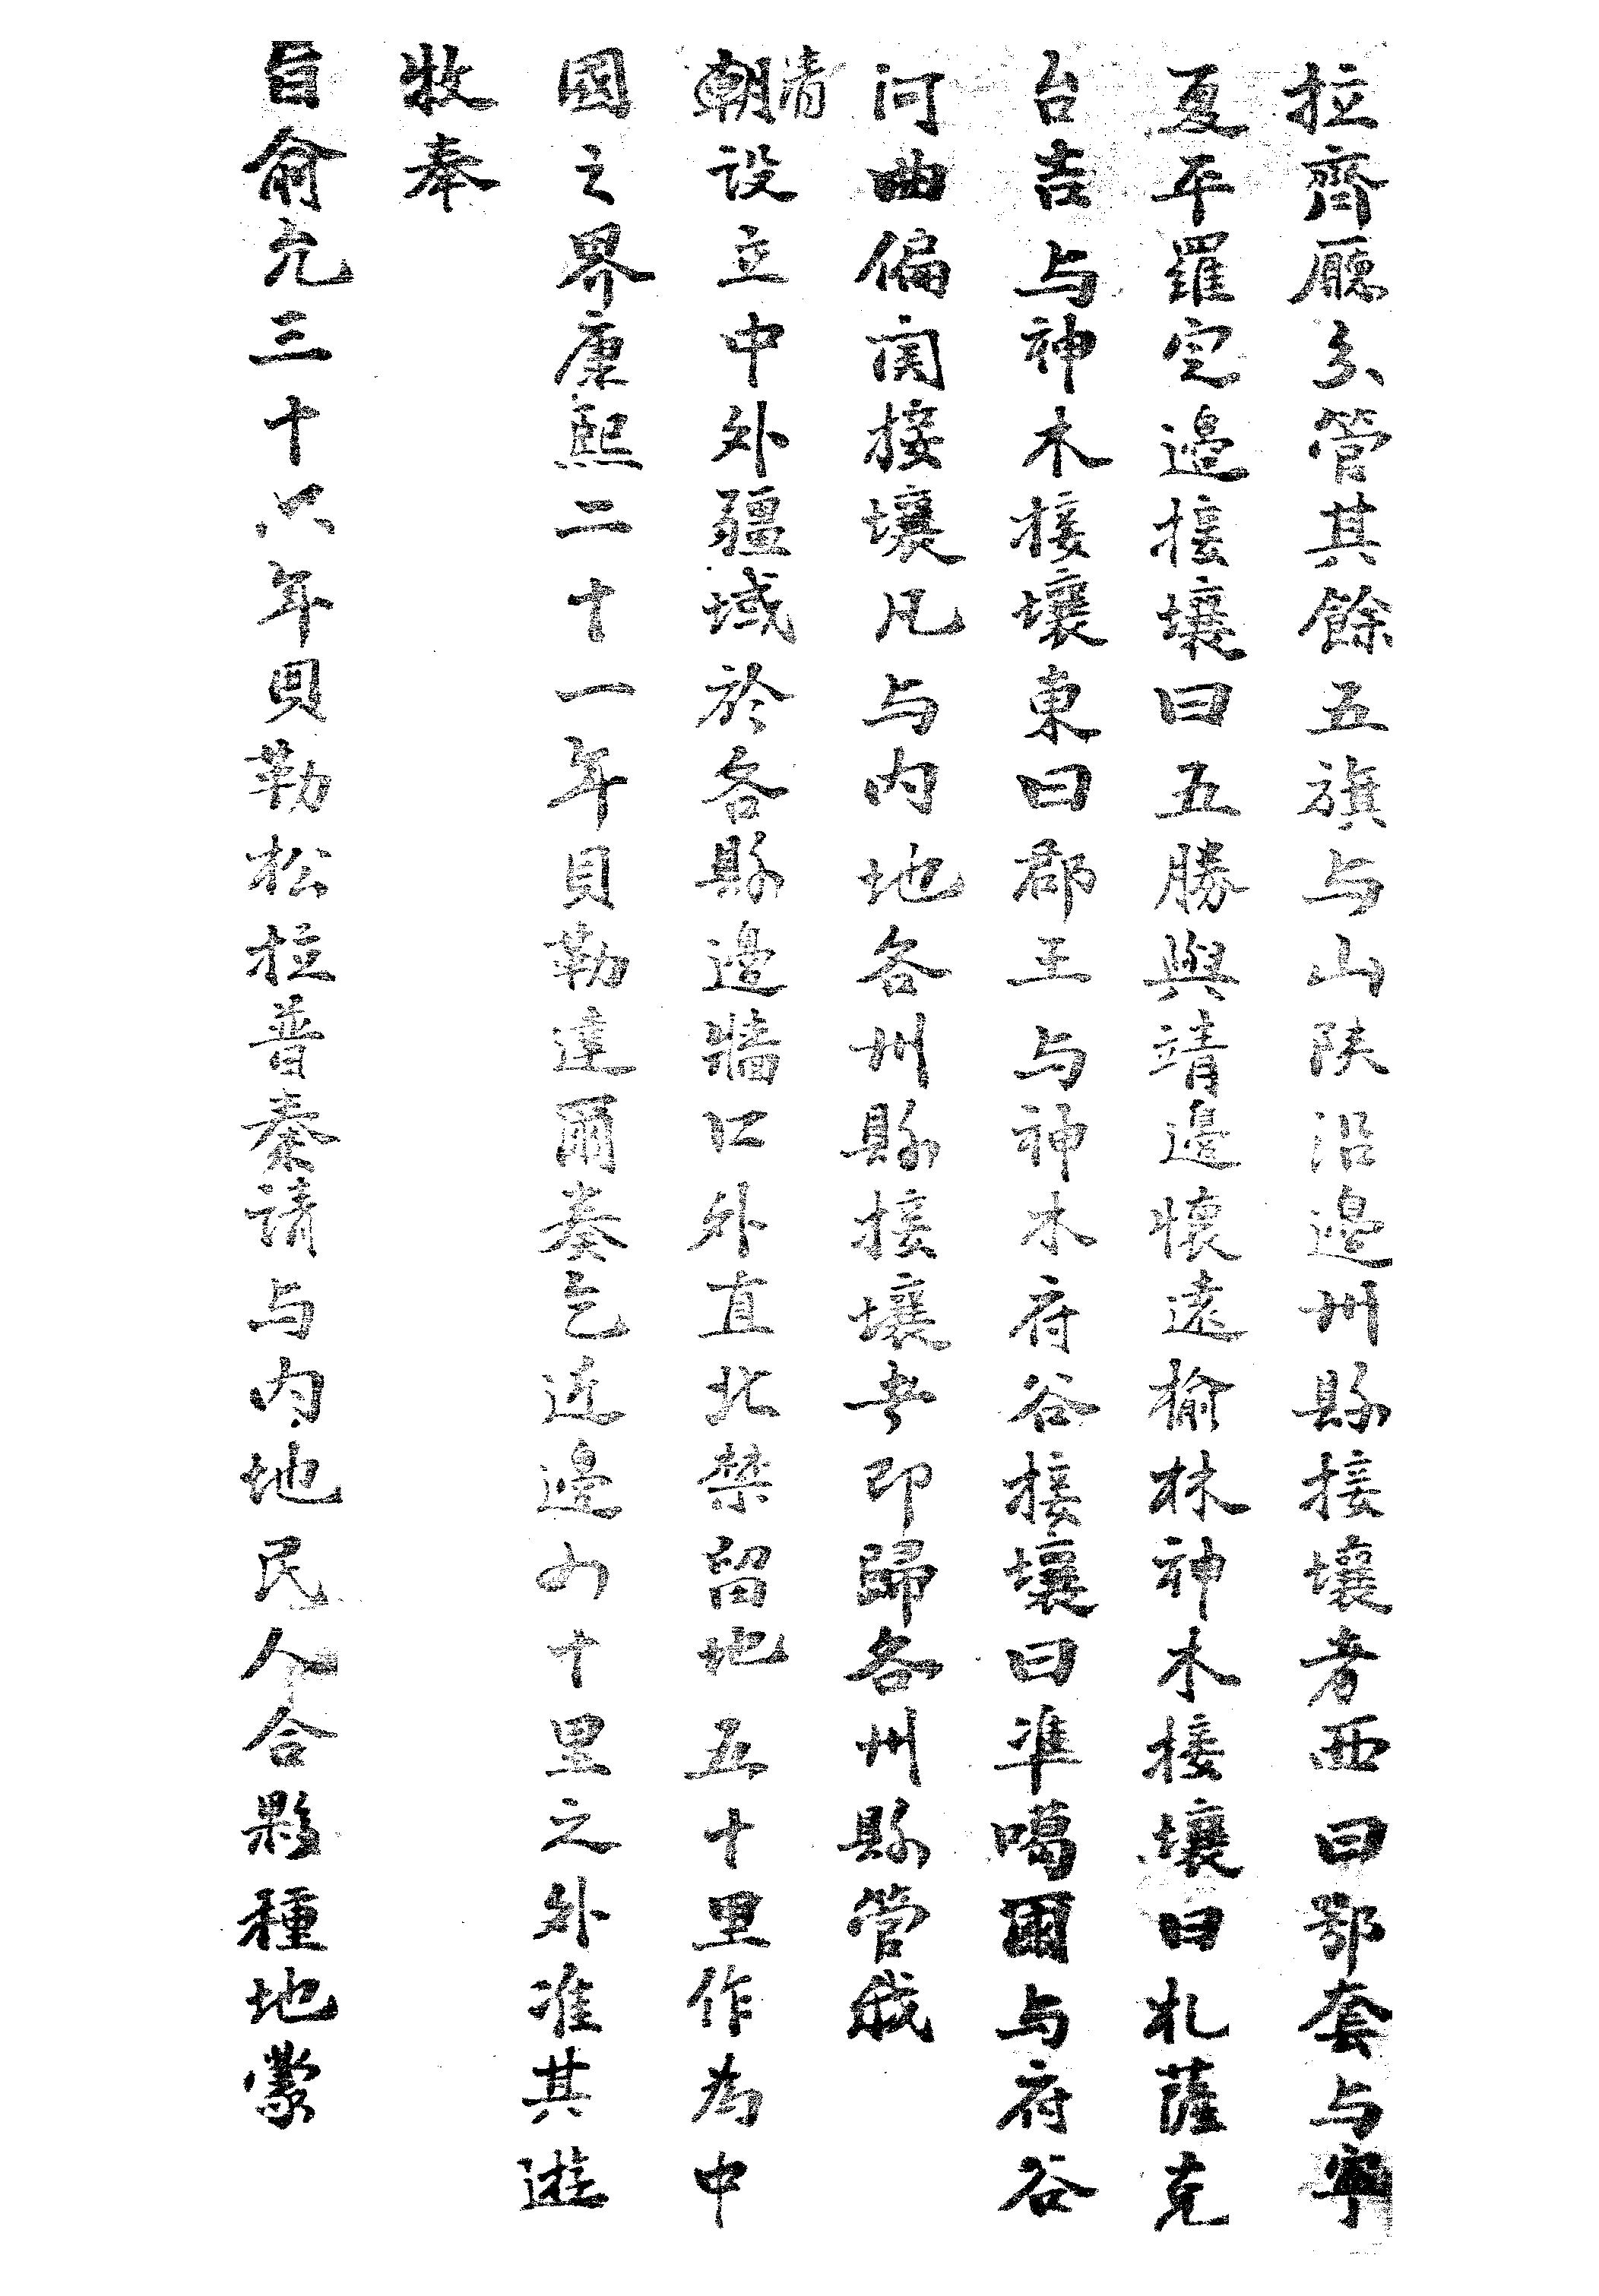 拉齊廳分管其餘五旗与山陕沿邉州縣接壤者西曰鄂套与寧
夏平羅定邉接壤曰五勝與靖邉懷遠榆林神木接壤曰札薩克
台吉与神木接壤東曰郡王与神木府谷接壤曰準噶爾与府谷
河曲偏関接壤凡与内地各州縣接壤者即歸各州縣管我
清朝設立中外疆域於各縣邉牆口外直北禁留地五十里作為中
國之界康熙二十一年貝勒達爾奏乞近邉四十里之外准其遊
牧奉
旨俞允三十六年貝勒松拉普奏請与内地民人合夥種地蒙